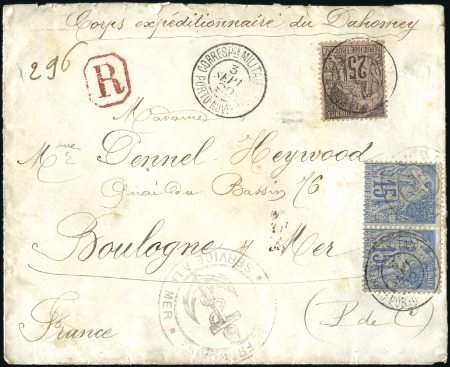 Corps expéditionnaire du Dahomey
296
R
CORRESP.ce MILITAIRE
3
SEPT
PORTO-NOVO
25
Madame
Mme Dennel-Heywood
Quai du Bassin 76
Boulogne s/ Mer
France
(P. de C)
15
15
SERVICE A LA MER